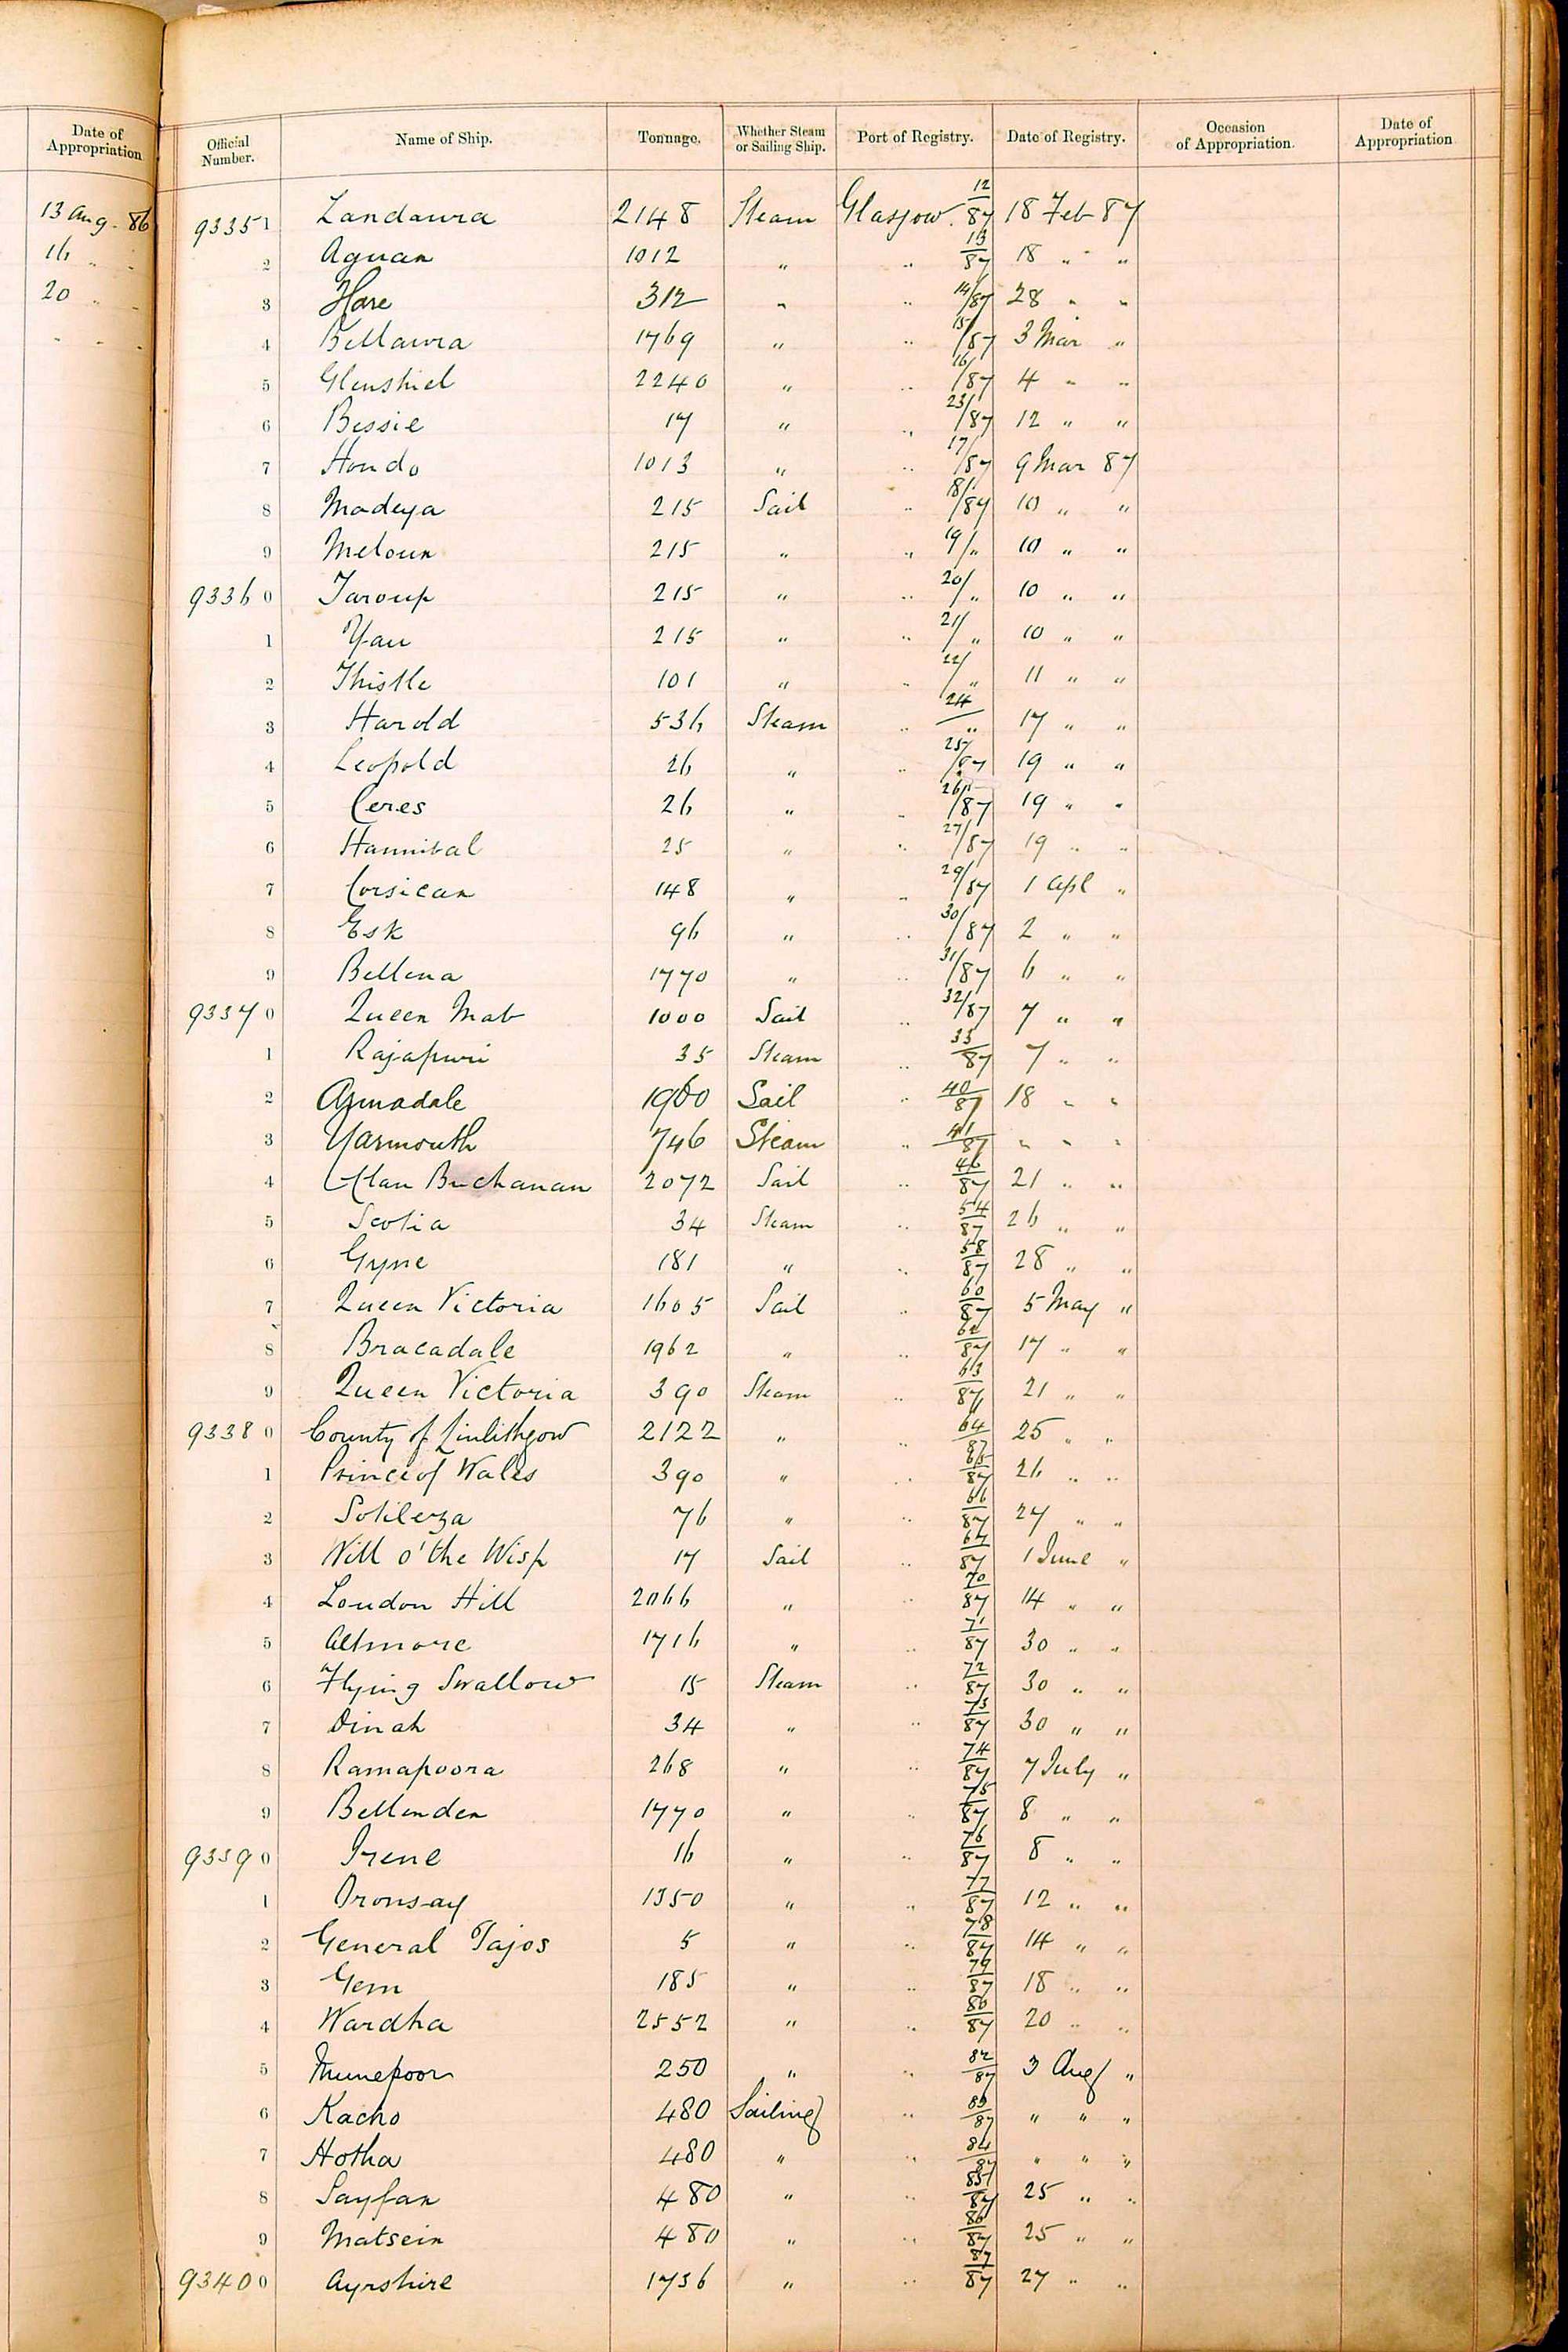 Date of Appropriation
13 Aug. 86
16 " "
20 " "
" " "
Official Number. Name of Ship. Tonnage. Whether Steam or Sailing Ship. Port of Registry. Date of Registry. Occasion of Appropriation. Date of Appropriation
93351 Landaura 2148 Steam Glasgow. 12/87 18 Feb 87
2 Aguan 1012 " " 13/87 18 " "
3 Hare 312 " " 14/87 28 " "
4 Bellaura 1769 " " 15/87 3 Mar "
5 Glenshiel 2240 " " 16/87 4 " "
6 Bessie 17 " " 23/87 12 " "
7 Hondo 1013 " " 17/87 9 Mar 87
8 Madeya 215 Sail " 18/87 10 " "
9 Meloun 215 " " 19/" 10 " "
93360 Taroup 215 " " 20/" 10 " "
1 Yau 215 " " 21/" 10 " "
2 Thistle 101 " " 22/" 11 " "
3 Harold 536 Steam " 24/" 17 " "
4 Leopold 26 " " 25/87 19 " "
5 Ceres 26 " " 26/87 19 " "
6 Hannibal 25 " " 27/87 19 " "
7 Corsican 148 " " 29/87 1 Apl "
8 Esk 96 " " 30/87 2 " "
9 Bellena 1770 " " 31/87 6 " "
93370 Queen Mab 1000 Sail " 32/87 7 " "
1 Rajapuri 35 Steam " 33/87 7 " "
2 Armadale 1960 Sail " 40/87 18 " "
3 Yarmouth 746 Steam " 41/87 " " "
4 Clan Buchanan 2072 Sail " 46/87 21 " "
5 Scotia 34 Steam " 54/87 26 " "
6 Gyne 181 " " 58/87 28 " "
7 Queen Victoria 1605 Sail " 60/87 5 May "
8 Bracadale 1962 " " 62/87 17 " "
9 Queen Victoria 390 Steam " 63/87 21 " "
93380 County of Linlithgow 2122 " " 64/87 25 " "
1 Prince of Wales 390 " " 65/87 26 " "
2 Sotileza 76 " " 66/87 27 " "
3 Will o' the Wisp 17 Sail " 67/87 1 June "
4 Loudon Hill 2066 " " 70/87 14 " "
5 Altmore 1716 " " 71/87 30 " "
6 Flying Swallow 15 Steam " 72/87 30 " "
7 Dinah 34 " " 73/87 30 " "
8 Ramapoora 268 " " 74/87 7 July "
9 Bellenden 1770 " " 75/87 8 " "
93390 Irene 16 " " 76/87 8 " "
1 Oronsay 1350 " " 77/87 12 " "
2 General Pajos 5 " " 78/87 14 " "
3 Gem 185 " " 79/87 18 " "
4 Wardha 2552 " " 80/87 20 " "
5 Munepoor 250 " " 82/87 3 Aug "
6 Kacho 480 Sailing " 83/87 " " "
7 Hotha 480 " " 84/87 " " "
8 Sayfan 480 " " 85/87 25 " "
9 Matsein 480 " " 86/87 25 " "
93400 Ayrshire 1736 " " 87/87 27 " "